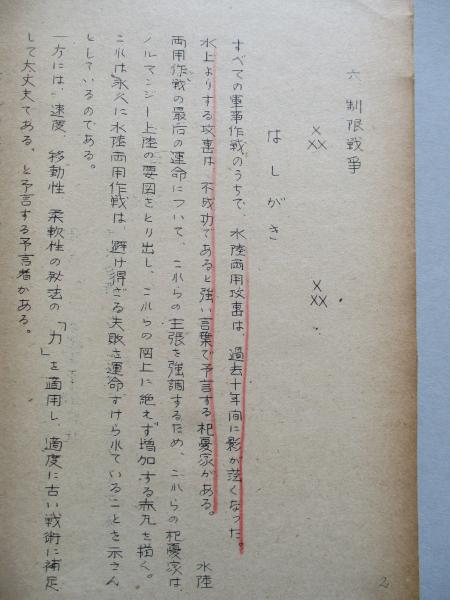 六 制限戦争
×
××
×
××
はしがき
すべての軍事作戦のうちで、水陸両用攻撃は、過去十年間に影が薄くなった。
水上よりする攻撃は、不成功であると強い言葉で予言する杞憂家がある。 水陸
両用作戦の最后の運命について、これらの主張を強調するため、これらの杞憂家は
ノルマンジー上陸の要図をとり出し、これらの図上に絶えず増加する赤丸を描く。
これは永久に水陸両用作戦は、避け得ざる失敗を運命ずけられていることを示さん
としているのである。
一方には、速度、移動性 柔軟性の秘法の「力」を適用し、適度に古い戦術に補足
して大丈夫である、と予言する予言者がある。
2